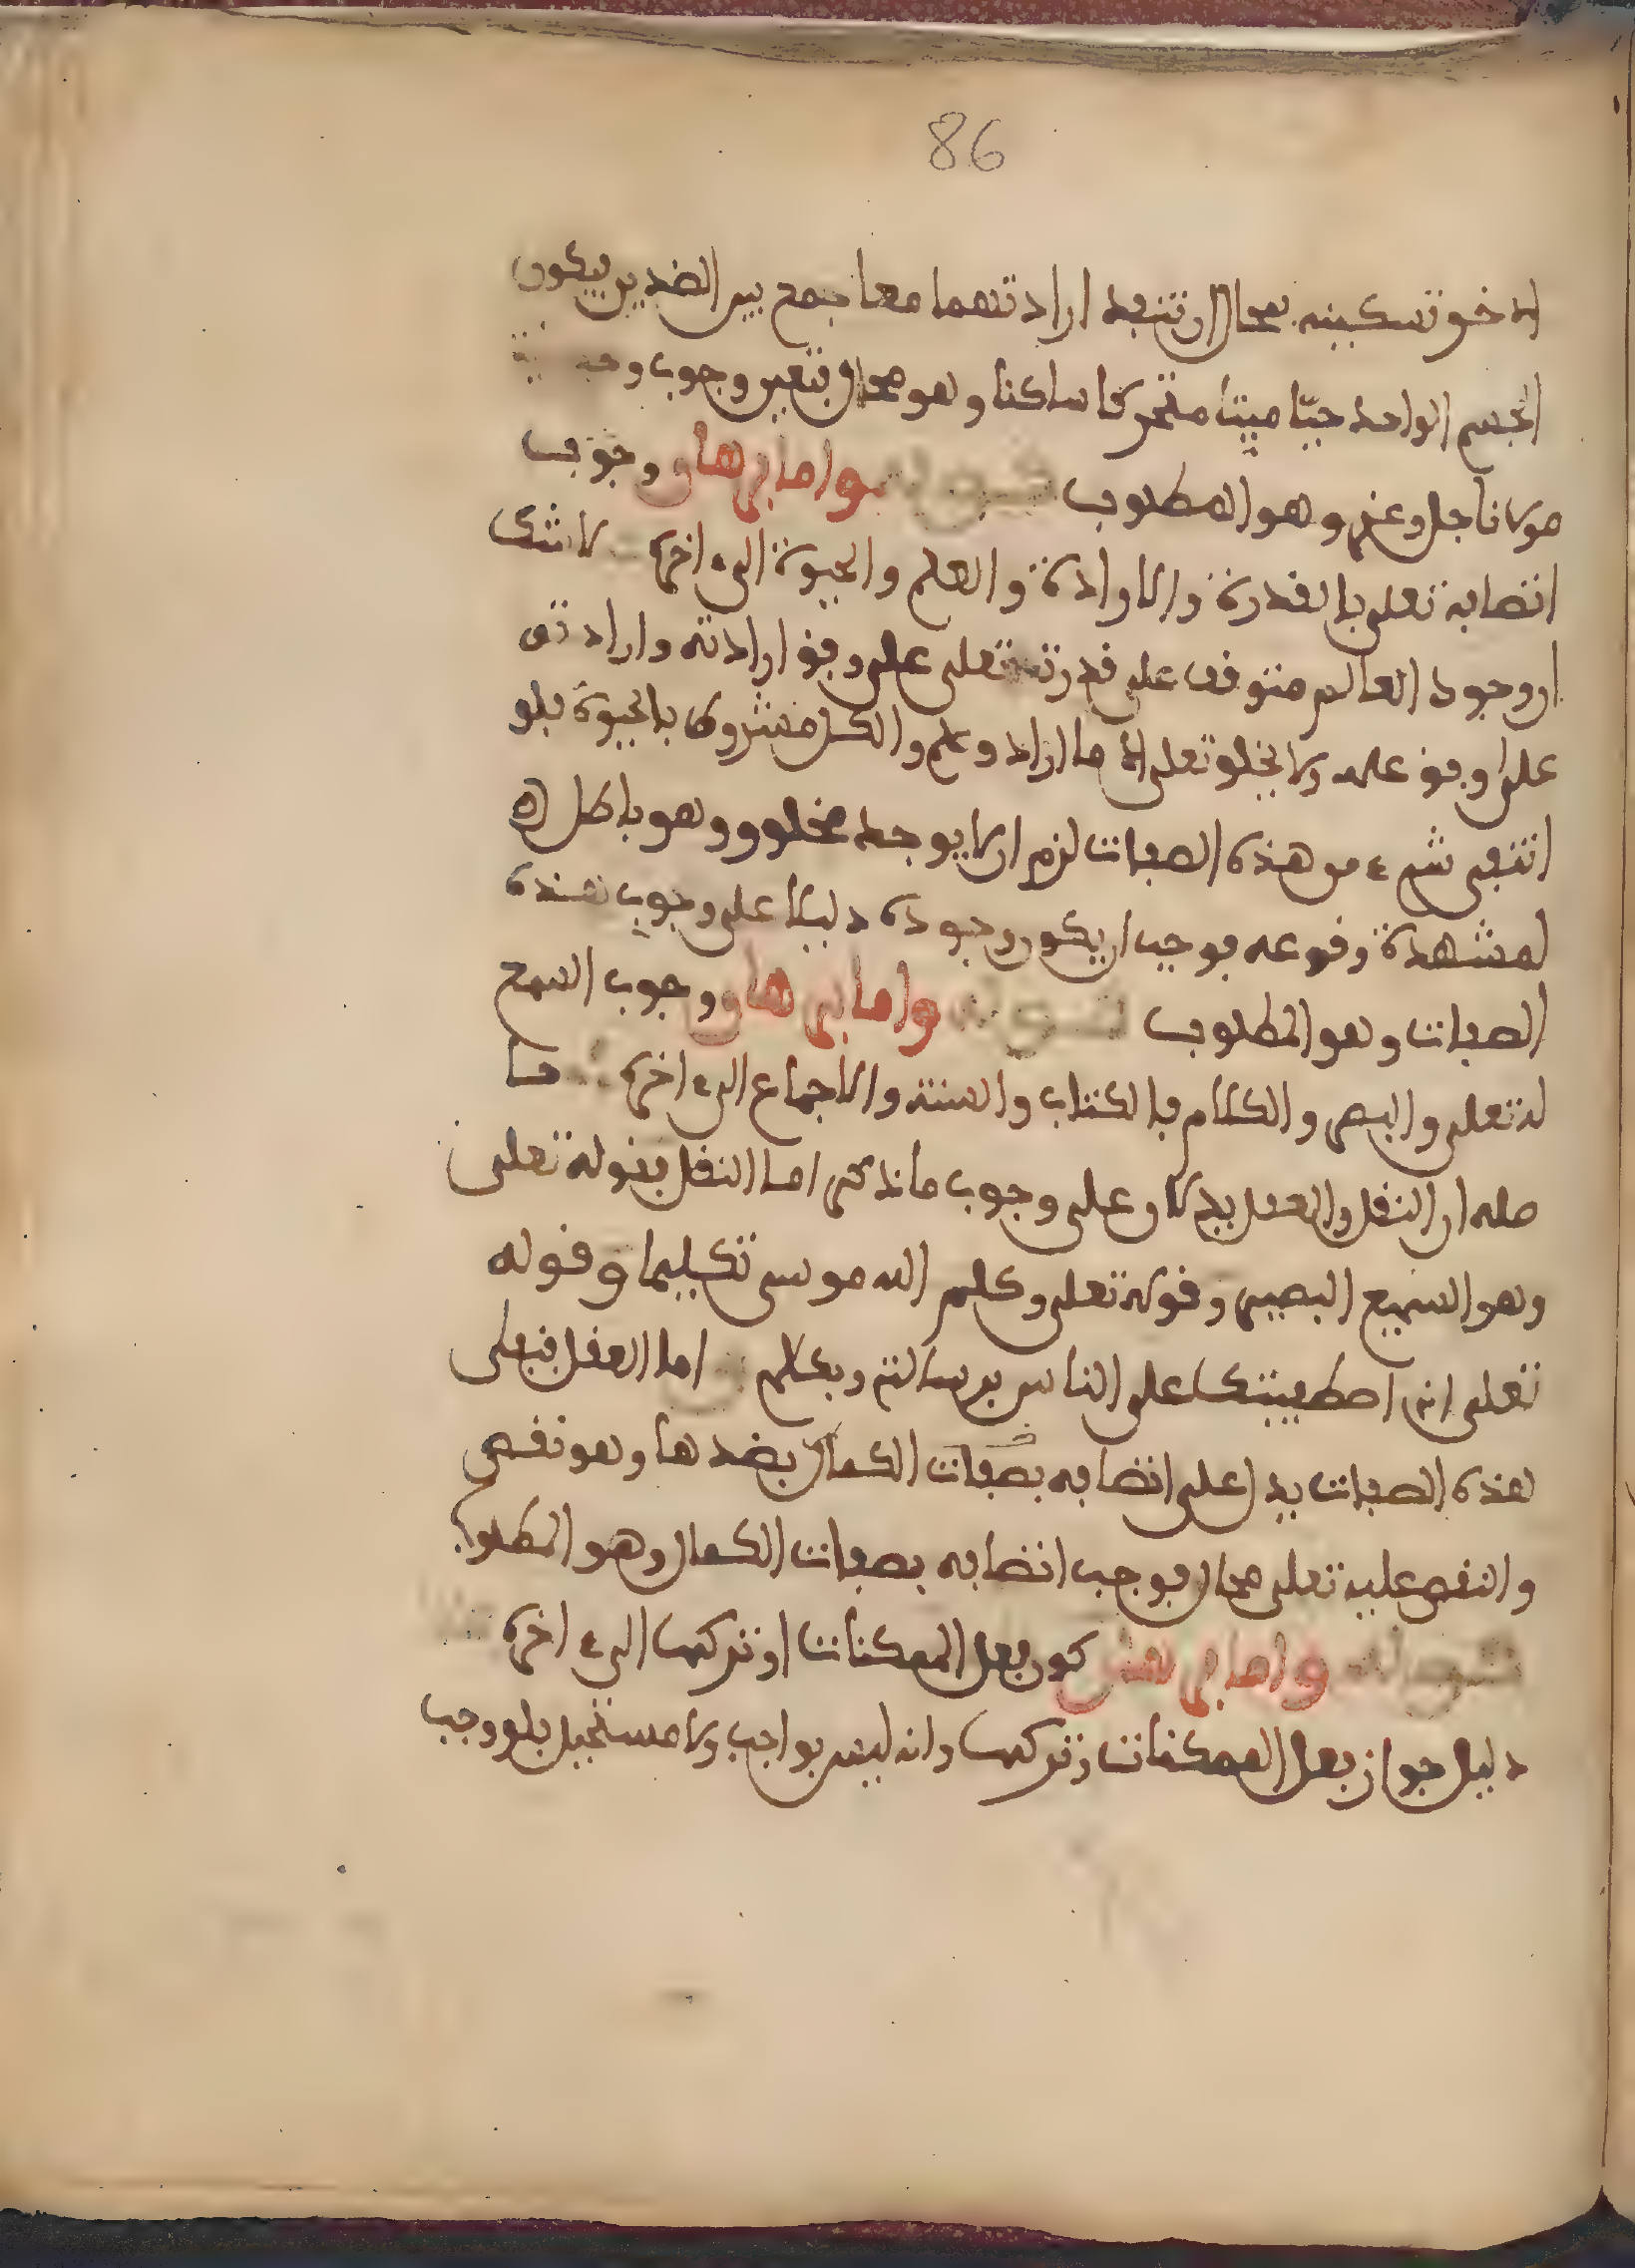 86
الاخر تسكينه فمحال ان تنفد ارادتهما معا جمع بين الضدين فيكون
الجسم الواحد حيّا ميتا متحركا ساكنا وهو محال فتعين وجوب
مولانا جل وعز وهو المطلوب قوله واما برهان وجوب
اتصافه تعلى بالقدرة والارادة والعلم والحيوة الىء اخره لا شك
ان وجود العالم متوقف على قدرته تعلى على وفق ارادته وارادته
على وفق علمه ولا يخلق تعلى الا ما اراد وعلم والكل مشروط بالحيوة فلو
انتفى شىء من هذه الصفات لزم ان لا يوجد مخلوق وهو باطل
لمشهدة وقوعه فوجب ان يكون وجوده دليلا على وجوب هذه
الصفات وهو المطلوب قوله واما برهان وجوب السمع
له تعلى والبصر والكلام فالكتاب والسنة والاجماع الىء اخره حا
صله ان النقل والعقل يدلان على وجوب ما ذكر اما النقل فقوله تعلى
وهو السميع البصير وقوله تعلى وكلم الله موسى تكليما وقوله
تعلى انى اصطفيتك على الناس برسالتى وبكلمى اما العقل فنفى
هذه الصفات يدل على اتصافه بصفات الكمال بضدها وهو نقص
والنقص عليه تعلى محال فوجب اتصافه بصفات الكمال وهو المطلوب
قوله واما برهان كون فعل الممكنات او تركها الىء اخره هذا
دليل جواز فعل الممكنات وتركها وانه ليس بواجب ولا مستحيل فلو وجب